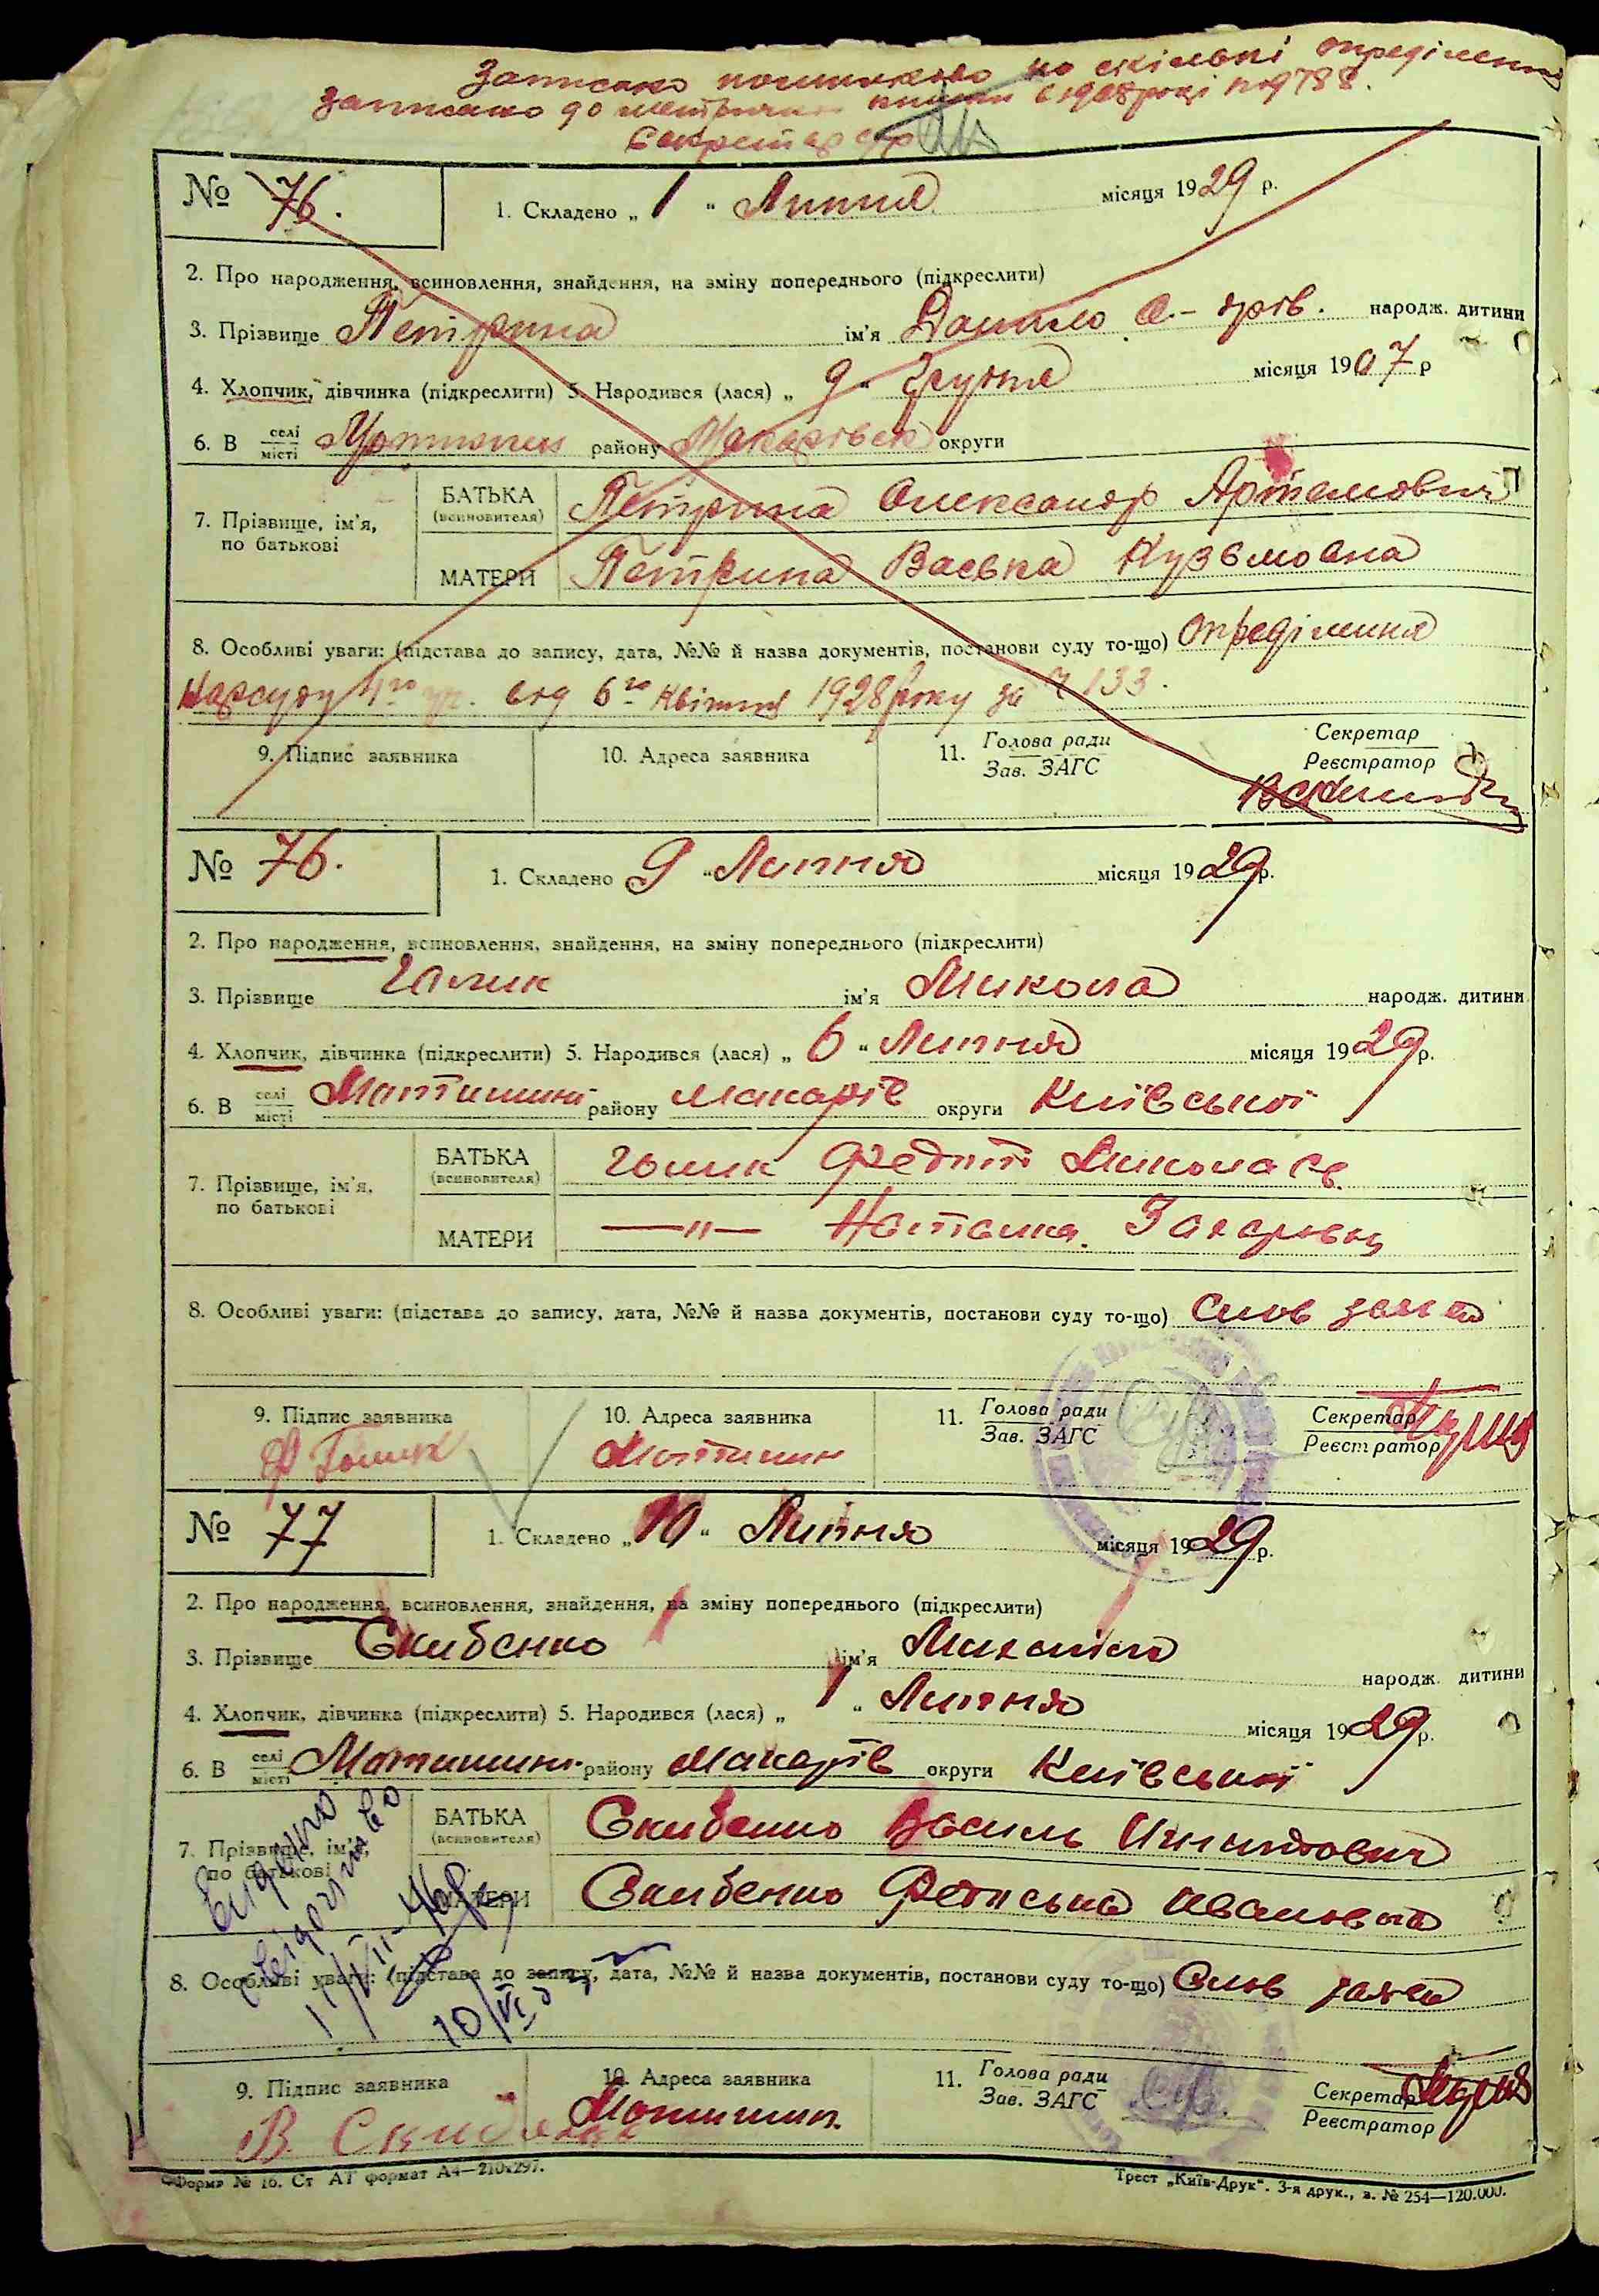 Записано помилково
Записано до
Секретар
№ 76. 1. Складено „ 1 “ Липня місяця 1929 р.
2. Про народження, всиновлення, знайдення, на зміну попереднього (підкреслити)
3. Прізвище Петрина ім'я Данило народж. дитини
4. Хлопчик, дівчинка (підкреслити) 5. Народився (лася) „ 9 “ Грудня місяця 1907 р
6. В селі місті району Макарівськ округи
7. Прізвище, ім'я, по батькові БАТЬКА (всиновителя) Петрина Олександр Артемович
МАТЕРИ Петрина Васька Кузьмовна
8. Особливі уваги: (підстава до запису, дата, №№ й назва документів, постанови суду то-що) Опреділення
Нарсуду від 6го Квітня 1928 року за № 133.
9. Підпис заявника 10. Адреса заявника 11. Голова ради Зав. ЗАГС Секретар Реєстратор
№ 76. 1. Складено 9 “ Липня місяця 1929 р.
2. Про народження, всиновлення, знайдення, на зміну попереднього (підкреслити)
3. Прізвище Голик ім'я Микола народж. дитини
4. Хлопчик, дівчинка (підкреслити) 5. Народився (лася) „ 6 “ Липня місяця 1929 р.
6. В селі місті Мотижині району Макарів округи Київської
7. Прізвище, ім'я, по батькові БАТЬКА (всиновителя) Голик Федот Миколаєв
МАТЕРИ —„— Наталка Захаровн
8. Особливі уваги: (підстава до запису, дата, №№ й назва документів, постанови суду то-що) Слов заява
9. Підпис заявника 10. Адреса заявника 11. Голова ради Зав. ЗАГС Секретар Реєстратор
Ф Голик Мотижин
№ 77 1. Складено „ 10 “ Липня місяця 1929 р.
2. Про народження, всиновлення, знайдення, на зміну попереднього (підкреслити)
3. Прізвище Скибенко ім'я Михайло народж. дитини
4. Хлопчик, дівчинка (підкреслити) 5. Народився (лася) „ 1 “ Липня місяця 1929 р.
6. В селі місті Мотижині району Макарів округи Київської
7. Прізвище, ім'я, по батькові БАТЬКА (всиновителя) Скибенко Василь
МАТЕРИ Скибенко Фотиська Івановна
Видано
8. Особливі уваги: (підстава до запису, дата, №№ й назва документів, постанови суду то-що) Слов заява
9. Підпис заявника 10. Адреса заявника 11. Голова ради Зав. ЗАГС Секретар Реєстратор
В. Скибенко Мотижин.
Форма № 16. Ст АТ формат А4—210х297. Трест „Київ-Друк“. 3-я друк., з. № 254—120.000.